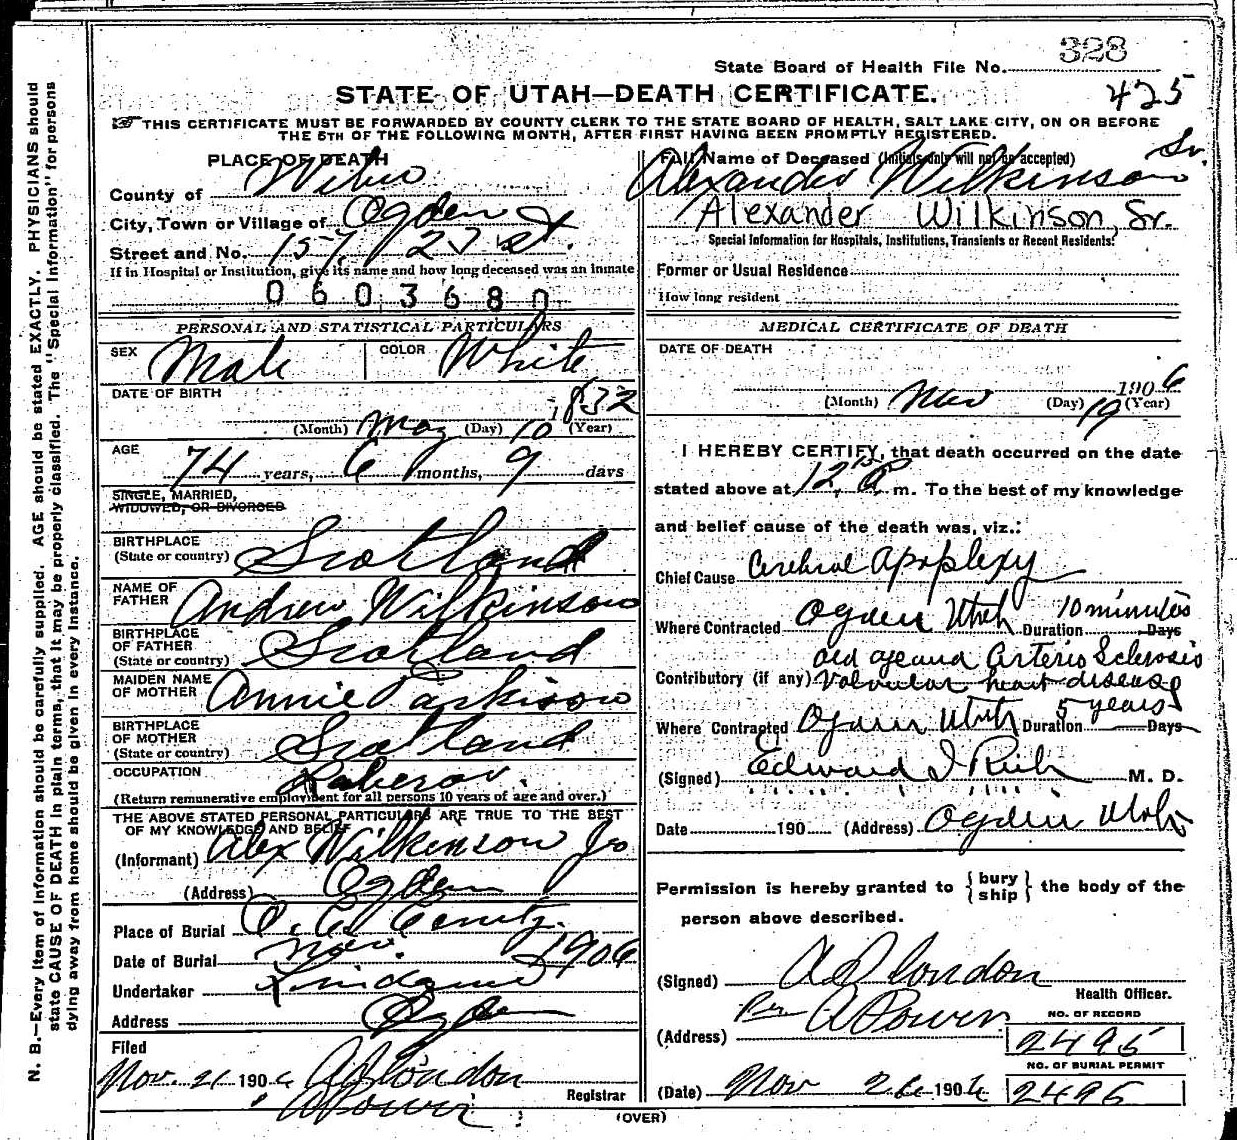 328
State Board of Health File No.
STATE OF UTAH—DEATH CERTIFICATE.
425
THIS CERTIFICATE MUST BE FORWARDED BY COUNTY CLERK TO THE STATE BOARD OF HEALTH, SALT LAKE CITY, ON OR BEFORE
THE 5TH OF THE FOLLOWING MONTH, AFTER FIRST HAVING BEEN PROMPTLY REGISTERED.
N. B.—Every item of information should be carefully supplied. AGE should be stated EXACTLY. PHYSICIANS should
state CAUSE OF DEATH in plain terms, that it may be properly classified. The "Special Information" for persons
dying away from home should be given in every instance.
PLACE OF DEATH
County of Weber
City, Town or Village of Ogden
Street and No. 157, 2 St.
If in Hospital or Institution, give its name and how long deceased was an inmate
0603680
PERSONAL AND STATISTICAL PARTICULARS
SEX Male COLOR White
DATE OF BIRTH
(Month) May (Day) 10 1832 (Year)
AGE
74 years, 6 months, 9 days
SINGLE, MARRIED,
WIDOWED, OR DIVORCED
BIRTHPLACE
(State or country) Scotland
NAME OF
FATHER Andrew Wilkinson
BIRTHPLACE
OF FATHER
(State or country) Scotland
MAIDEN NAME
OF MOTHER Annie Parkison
BIRTHPLACE
OF MOTHER
(State or country) Scotland
OCCUPATION
(Return remunerative employment for all persons 10 years of age and over.)
THE ABOVE STATED PERSONAL PARTICULARS ARE TRUE TO THE BEST
OF MY KNOWLEDGE AND BELIEF
(Informant) Alex Wilkinson Jr
(Address) Ogden
Place of Burial O. C. Cemty.
Date of Burial Nov. 1906
Undertaker
Address Ogden
Filed
Nov. 21 1906
Registrar
Full Name of Deceased (Initials only will not be accepted)
Alexander Wilkinson Sr.
Alexander Wilkinson, Sr.
Special Information for Hospitals, Institutions, Transients or Recent Residents:
Former or Usual Residence
How long resident
MEDICAL CERTIFICATE OF DEATH
DATE OF DEATH
1906
(Month) Nov (Day) 19 (Year)
I HEREBY CERTIFY, that death occurred on the date
stated above at 12 m. To the best of my knowledge
and belief cause of the death was, viz.:
Chief Cause Cerebral Apoplexy
Where Contracted Ogden Utah Duration 10 minutes Days
old age and Arterio Sclerosis
Contributory (if any) Valvular heart disease
Where Contracted Ogden Utah Duration 5 years Days
(Signed) Edward I Rich M. D.
Date 190 (Address) Ogden Utah
Permission is hereby granted to {bury ship} the body of the
person above described.
(Signed) A D London
Health Officer.
Per A Bowen
(Address)
NO. OF RECORD
2495
NO. OF BURIAL PERMIT
(Date) Nov 1906 2495
(OVER)